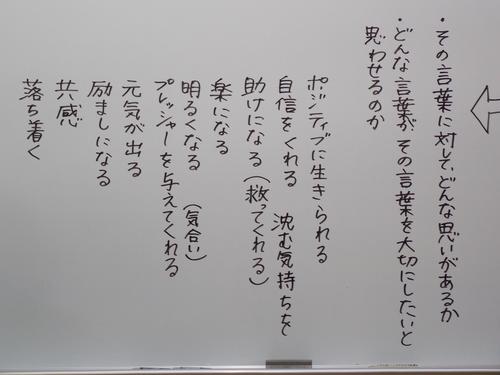 ・その言葉に対して、どんな思いがあるか
・どんな言葉が、その言葉を大切にしたいと
思わせるのか
ポジティブに生きられる
自信をくれる　沈む気持ちを
助けになる（救ってくれる）
楽になる
明るくなる　（気合い）
プレッシャーを与えてくれる
元気が出る
励ましになる
共感
落ち着く